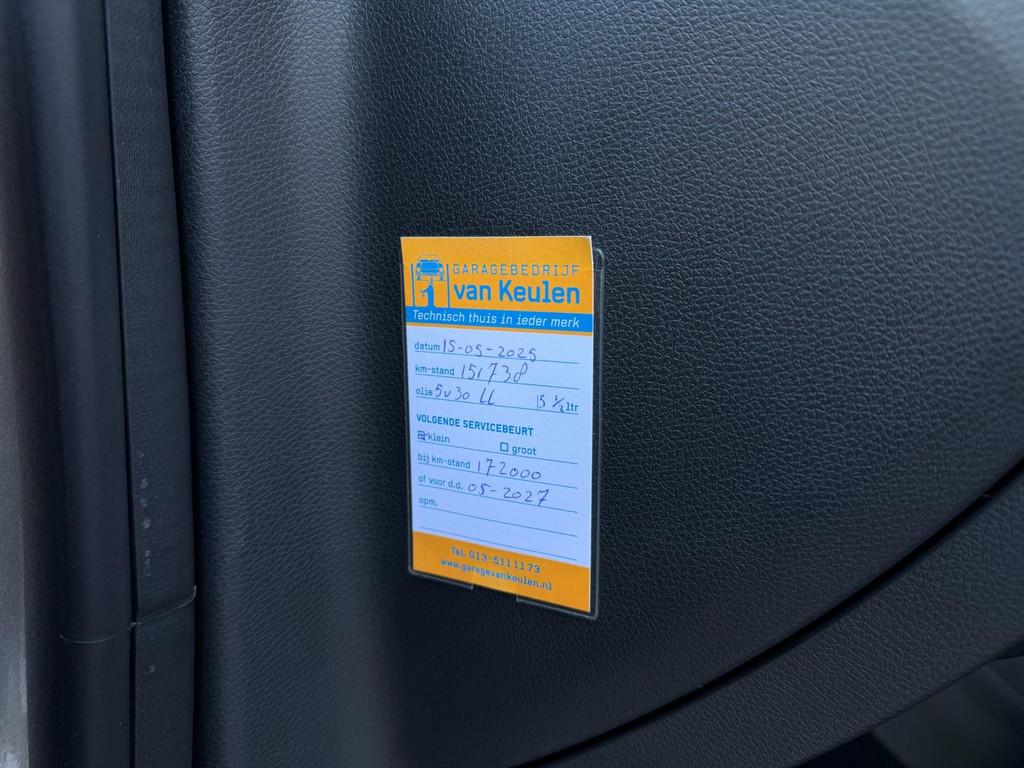 GARAGEBEDRIJF
van Keulen
Technisch thuis in ieder merk
datum 15-05-2025
km-stand 151738
olie 5w30 LL 5 1/2 ltr
VOLGENDE SERVICEBEURT
klein groot
bij km-stand 172000
of voor d.d. 05-2027
opm.
Tel. 013-5111173
www.garagevankeulen.nl